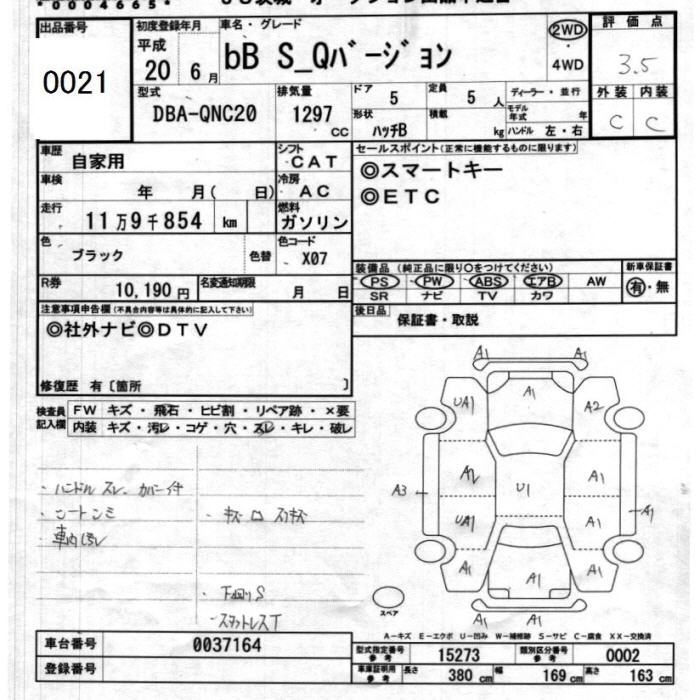 *0004665*
出品番号
0021
初度登録年月
平成
20 6月
車名・グレード
bB S_Qバージョン
2WD
4WD
評価点
3.5
型式
DBA-QNC20
排気量
1297 CC
ドア
5
定員
5 人
ディーラー・並行
形状
ハッチB
積載
kg
モデル年式
年
ハンドル 左・右
外装 内装
C C
車歴
自家用
シフト
CAT
車検
年 月( 日)
冷房
AC
走行
11万9千854 km
燃料
ガソリン
色
ブラック
色替
色コード
X07
R券
10,190円
名変通知期限
月 日
セールスポイント(正常に機能するものに限ります)
◎スマートキー
◎ETC
装備品 (純正品に限り○をつけてください)
PS PW ABS エアB AW
SR ナビ TV カワ
新車保証書
有・無
後日品
保証書・取説
注意事項申告欄(不具合内容等は具体的に記入して下さい)
◎社外ナビ◎DTV
修復歴 有〔箇所 〕
検査員記入欄
FW キズ・飛石・ヒビ割・リペア跡・×要
内装 キズ・汚レ・コゲ・穴・スレ・キレ・破レ
・ハンドルスレ・カバー付
・シートシミ
・車内汚レ
・下回りS
・スタットレスT
A1 A1
UA1 A1 A2
A3 A2 U1 A1
UA1 A1 A1
A1 A1 A1
A1
スペア
A-キズ E-エクボ U-凹み W-補修跡 S-サビ C-腐食 XX-交換済
車台番号
0037164
登録番号
型式指定番号
参考
15273
類別区分番号
参考
0002
車庫証明用
参考
長さ 380 cm 幅 169 cm 高さ 163 cm